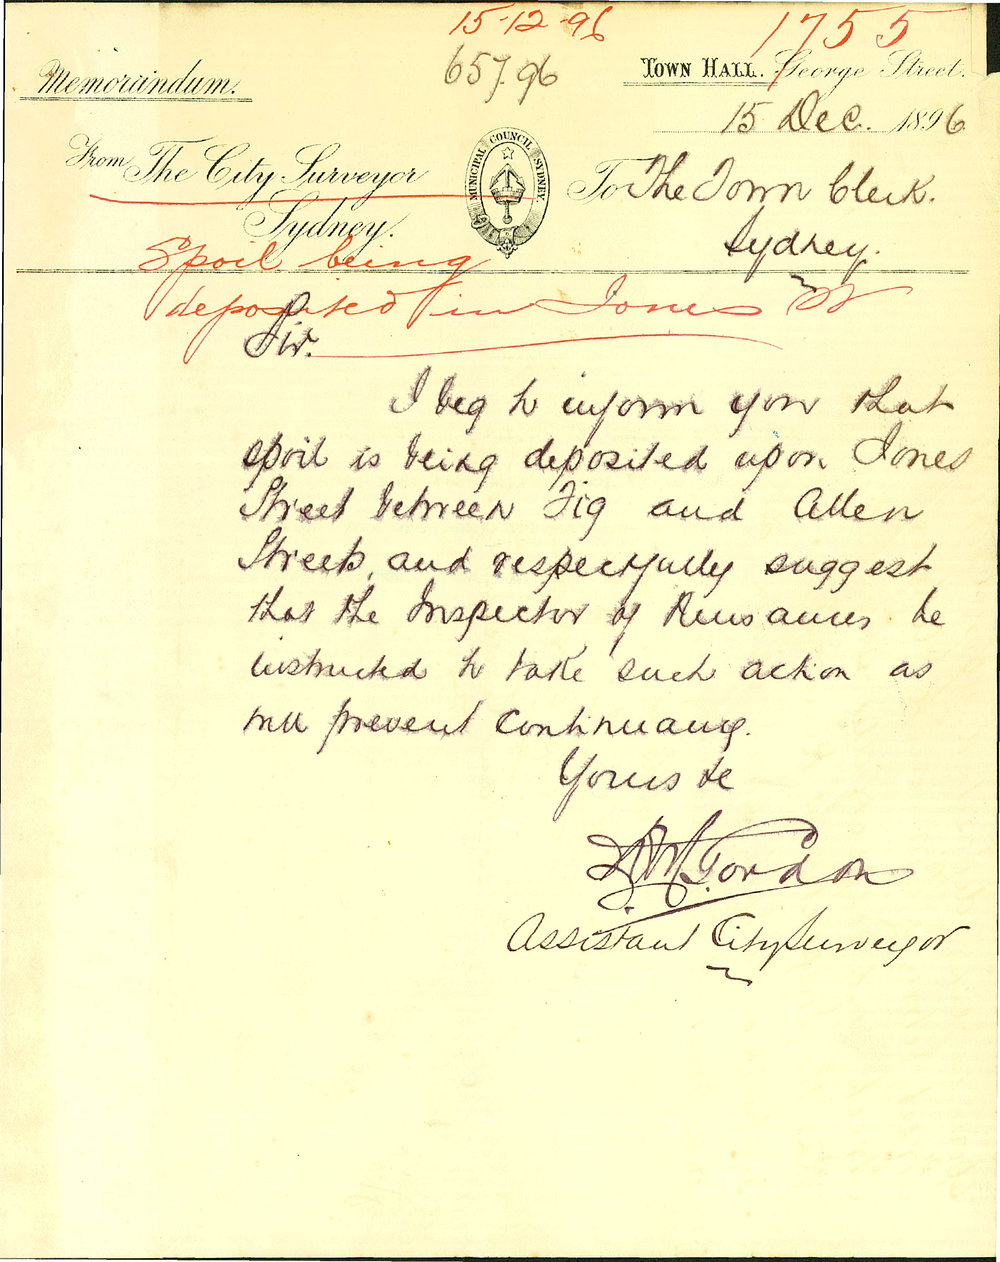 15-12-96
1755
657.96
Memorandum.
TOWN HALL. George Street.
15 Dec. 1896
From The City Surveyor
Sydney.
MUNICIPAL COUNCIL SYDNEY.
To The Town Clerk.
Sydney.
Spoil being
deposited in Jones St
Sir.
I beg to inform you that
spoil is being deposited upon Jones
Street between Fig and Allen
Streets, and respectfully suggest
that the Inspector of Nuisances be
instructed to take such action as
will prevent continuance.
Yours &c
Gordon
Assistant City Surveyor